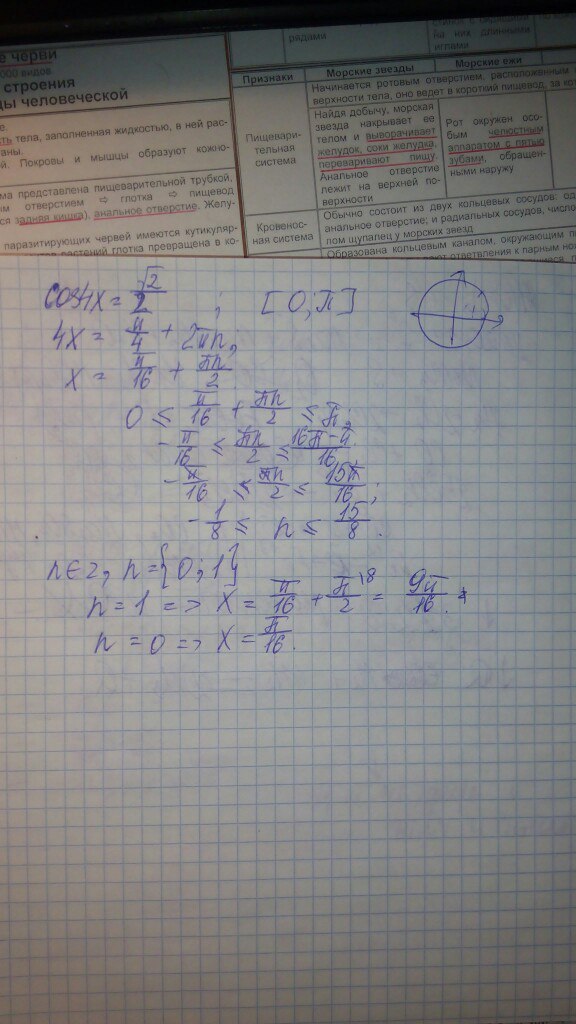 е черви
000 видов
строения
ды человеческой
е.
ть тела, заполненная жидкостью, в ней рас-
аны.
й. Покровы и мышцы образуют кожно-
ма представлена пищеварительной трубкой,
ым отверстием ⇨ глотка ⇨ пищевод
ся задняя кишка), анальное отверстие. Желу-
паразитирующих червей имеются кутикуляр-
растений глотка превращена в ко-
рядами
ка них длинными
иглами
Признаки
Морские звезды
Морские ежи
Начинается ротовым отверстием, расположенным
верхности тела, оно ведет в короткий пищевод, за
Пищевари-
тельная
система
Найдя добычу, морская
звезда накрывает ее
телом и выворачивает
желудок, соки желудка
переваривают пищу.
Анальное отверстие
лежит на верхней по-
верхности
Рот окружен осо-
бым челюстным
аппаратом с пятью
зубами, обращен-
ными наружу
Кровенос-
ная система
Обычно состоит из двух кольцевых сосудов: од
анальное отверстие; и радиальных сосудов, число
лом щупалец у морских звезд
Образована кольцевым каналом, окружающим
ответвления к парным
cos4x = √2/2 ; [0; π]
4x = π/4 + 2πn;
x = π/16 + πn/2
0 ≤ π/16 + πn/2 ≤ π;
-π/16 ≤ πn/2 ≤ 16π-π/16
-π/16 ≤ πn/2 ≤ 15π/16;
-1/8 ≤ n ≤ 15/8.
n∈z, n={0; 1}
n=1 => x = π/16 + π/2 \8 = 9π/16.
n=0 => x = π/16.